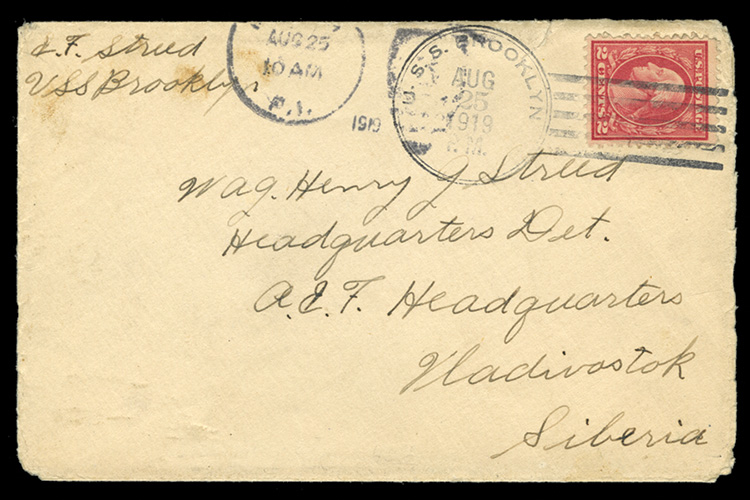 E.F. Strued
USS Brooklyn
AUG 25
10 AM
P.I.
1919
U.S.S. BROOKLYN
AUG
25
1919
U.S. POSTAGE
2 CENTS 2
Wag. Henry J Strued
Headquarters Det.
A.E.F. Headquarters
Vladivostok
Siberia